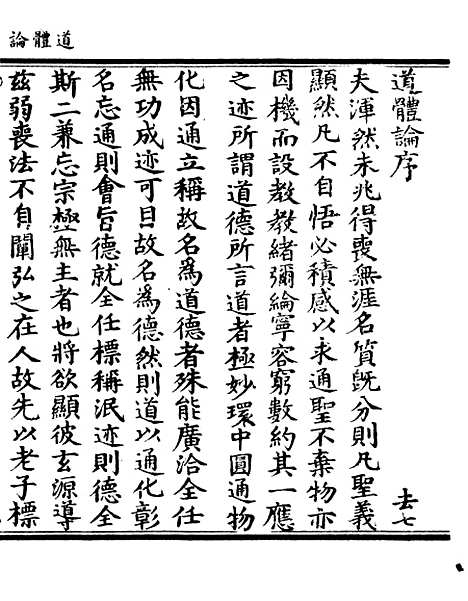 論體道
道體論序
去七
夫渾然未兆得喪無涯名質既分則凡聖義
顯然凡不自悟必積感以求通聖不棄物亦
因機而設教教緒彌綸寧容窮數約其一應
之迹所謂道德所言道者極妙環中圓通物
化因通立稱故名爲道德者殊能廣洽全任
無功成迹可目故名爲德然則道以通化彰
名忘通則會旨德就全任標稱泯迹則德全
斯二兼忘宗極無主者也將欲顯彼玄源導
兹弱喪法不負闡弘之在人故先以老子標